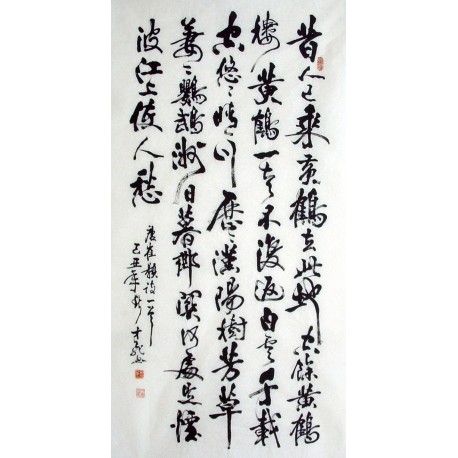 昔人已乘黃鶴去此地空餘黃鶴
樓黃鶴一去不復返白雲千載
空悠々晴川歷々漢陽樹芳草
萋々鸚鵡洲日暮鄉關何處是煙
波江上使人愁
唐崔顥詩一首
己丑年秋